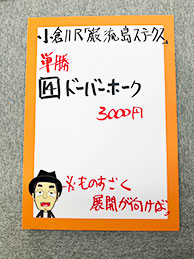 小倉11R「巌流島ステークス」
単勝
14 ドーバーホーク
3000円
※ものすごく
展開が向けば